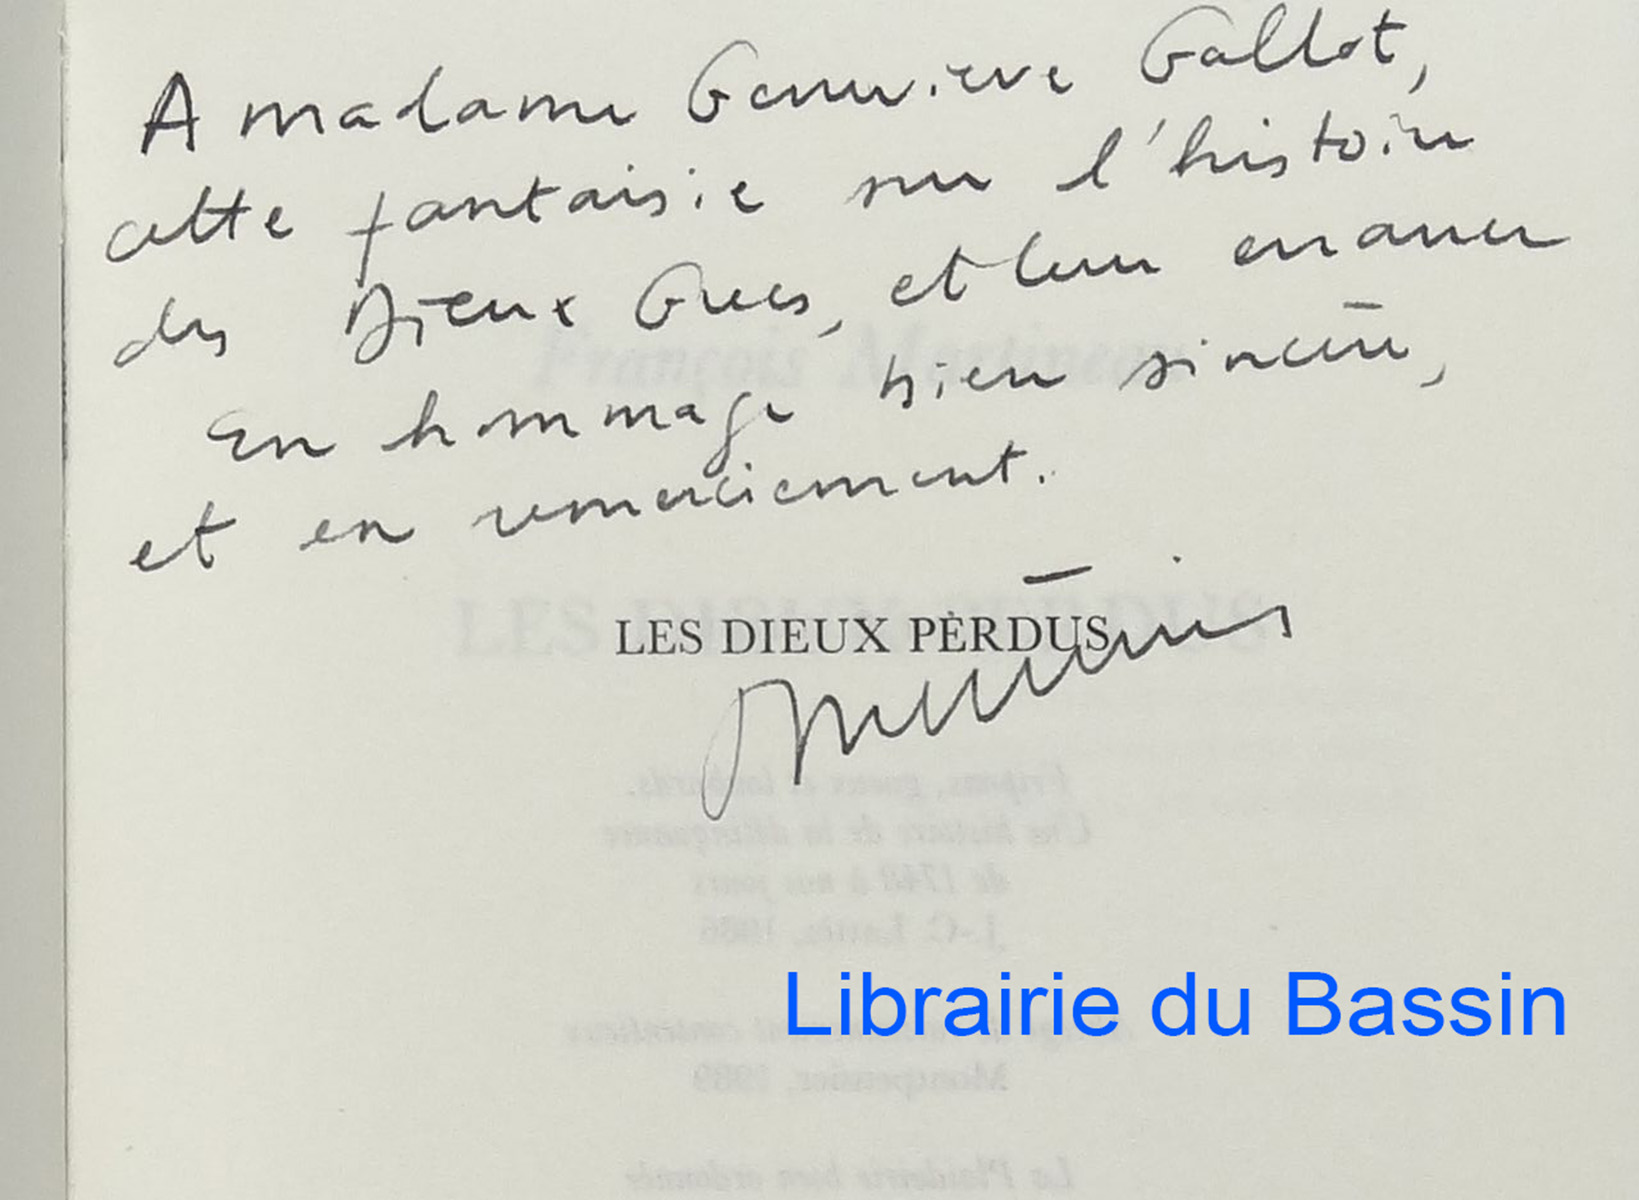 A madame Geneviève Gallot,
cette fantaisie sur l'histoire
des Dieux Grecs, et leur
En hommage bien sincère,
et en remerciement.
LES DIEUX PERDUS
Librairie du Bassin